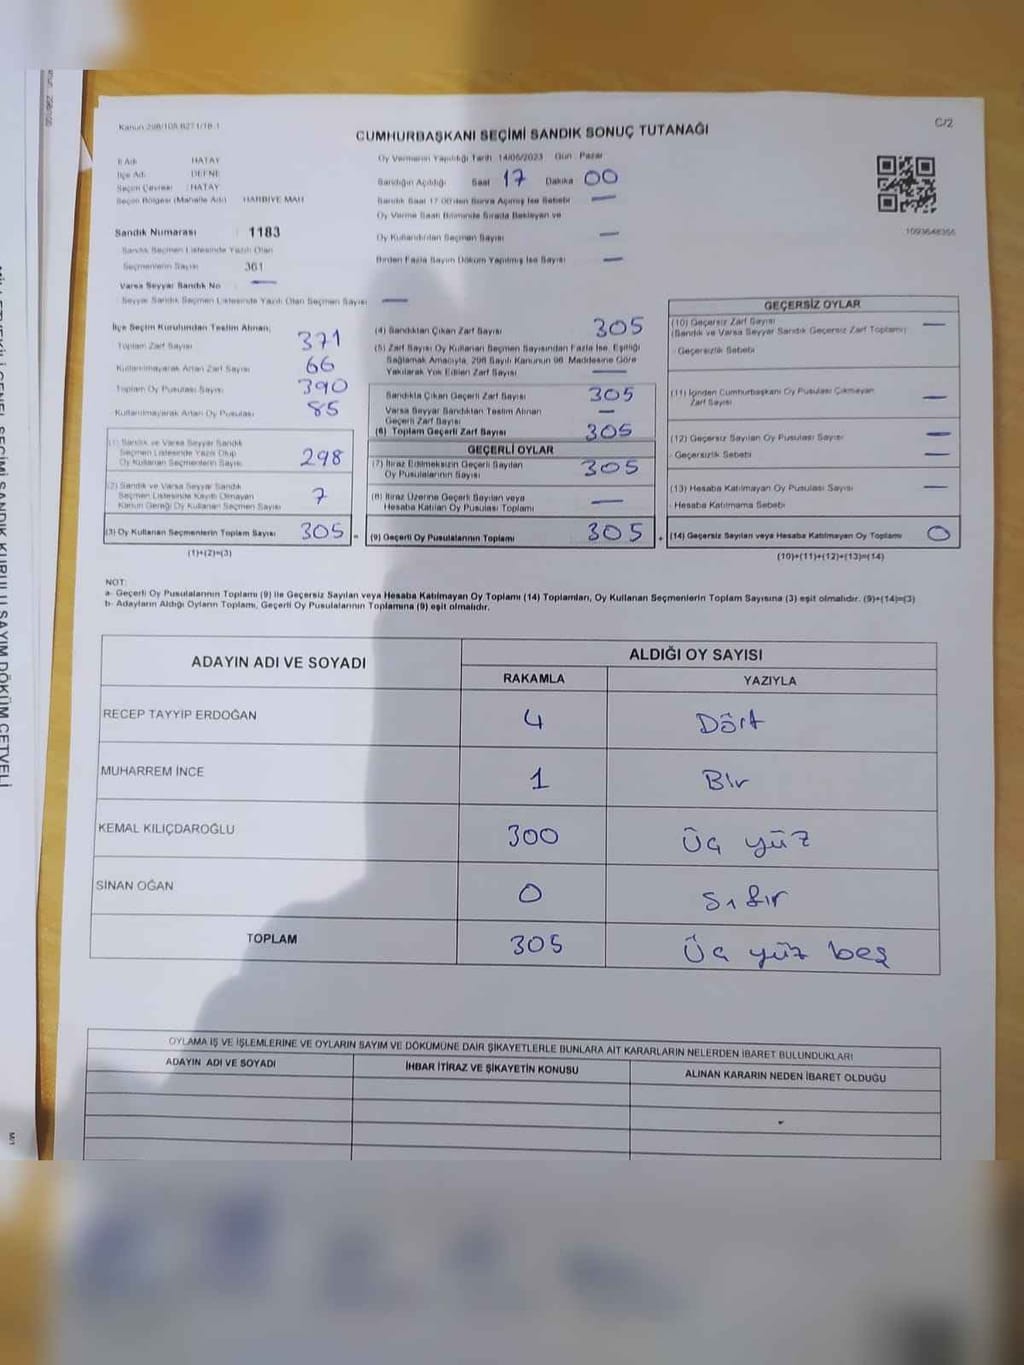 Kanun:298/105,6271/18-1
C/2
CUMHURBAŞKANI SEÇİMİ SANDIK SONUÇ TUTANAĞI
İl Adı HATAY
İlçe Adı DEFNE
Seçim Çevresi : HATAY
Seçim Bölgesi (Mahalle Adı) HARBİYE MAH
Sandık Numarası : 1183
Sandık Seçmen Listesinde Yazılı Olan
Seçmenlerin Sayısı 361
Varsa Seyyar Sandık No —
Seyyar Sandık Seçmen Listesinde Yazılı Olan Seçmen Sayısı —
Oy Vermenin Yapıldığı Tarih 14/05/2023 Gün Pazar
Sandığın Açıldığı Saat 17 Dakika 00
Sandık Saat 17:00'den Sonra Açılmış İse Sebebi —
Oy Verme Saati Bitiminde Sırada Bekleyen ve
Oy Kullandırılan Seçmen Sayısı —
Birden Fazla Sayım Döküm Yapılmış İse Sayısı —
İlçe Seçim Kurulundan Teslim Alınan;
Toplam Zarf Sayısı 371
Kullanılmayarak Artan Zarf Sayısı 66
Toplam Oy Pusulası Sayısı 390
Kullanılmayarak Artan Oy Pusulası 85
(1) Sandık ve Varsa Seyyar Sandık
Seçmen Listesinde Yazılı Olup
Oy Kullanan Seçmenlerin Sayısı 298
(2) Sandık ve Varsa Seyyar Sandık
Seçmen Listesinde Kayıtlı Olmayan
Kanun Gereği Oy Kullanan Seçmen Sayısı 7
(3) Oy Kullanan Seçmenlerin Toplam Sayısı 305 =
(1)+(2)=(3)
(4) Sandıktan Çıkan Zarf Sayısı 305
(5) Zarf Sayısı Oy Kullanan Seçmen Sayısından Fazla İse, Eşitliği
Sağlamak Amacıyla, 298 Sayılı Kanunun 98. Maddesine Göre
Yakılarak Yok Edilen Zarf Sayısı —
Sandıkta Çıkan Geçerli Zarf Sayısı 305
Varsa Seyyar Sandıktan Teslim Alınan
Geçerli Zarf Sayısı —
(6) Toplam Geçerli Zarf Sayısı 305
GEÇERLİ OYLAR
(7) İtiraz Edilmeksizin Geçerli Sayılan
Oy Pusulalarının Sayısı 305
(8) İtiraz Üzerine Geçerli Sayılan veya
Hesaba Katılan Oy Pusulası Toplamı —
(9) Geçerli Oy Pusulalarının Toplamı 305 +
1093648355
GEÇERSİZ OYLAR
(10) Geçersiz Zarf Sayısı
(Sandık ve Varsa Seyyar Sandık Geçersiz Zarf Toplamı) —
- Geçersizlik Sebebi
(11) İçinden Cumhurbaşkanı Oy Pusulası Çıkmayan
Zarf Sayısı —
(12) Geçersiz Sayılan Oy Pusulası Sayısı —
- Geçersizlik Sebebi —
(13) Hesaba Katılmayan Oy Pusulası Sayısı —
- Hesaba Katılmama Sebebi
(14) Geçersiz Sayılan veya Hesaba Katılmayan Oy Toplamı 0
(10)+(11)+(12)+(13)=(14)
NOT:
a- Geçerli Oy Pusulalarının Toplamı (9) ile Geçersiz Sayılan veya Hesaba Katılmayan Oy Toplamı (14) Toplamları, Oy Kullanan Seçmenlerin Toplam Sayısına (3) eşit olmalıdır. (9)+(14)=(3)
b- Adayların Aldığı Oyların Toplamı, Geçerli Oy Pusulalarının Toplamına (9) eşit olmalıdır.
ADAYIN ADI VE SOYADI
ALDIĞI OY SAYISI
RAKAMLA YAZIYLA
RECEP TAYYİP ERDOĞAN 4 Dört
MUHARREM İNCE 1 Bir
KEMAL KILIÇDAROĞLU 300 Üç yüz
SİNAN OĞAN 0 Sıfır
TOPLAM 305 Üç yüz beş
OYLAMA İŞ VE İŞLEMLERİNE VE OYLARIN SAYIM VE DÖKÜMÜNE DAİR ŞİKAYETLERLE BUNLARA AİT KARARLARIN NELERDEN İBARET BULUNDUKLARI
ADAYIN ADI VE SOYADI İHBAR İTİRAZ VE ŞİKAYETİN KONUSU ALINAN KARARIN NEDEN İBARET OLDUĞU